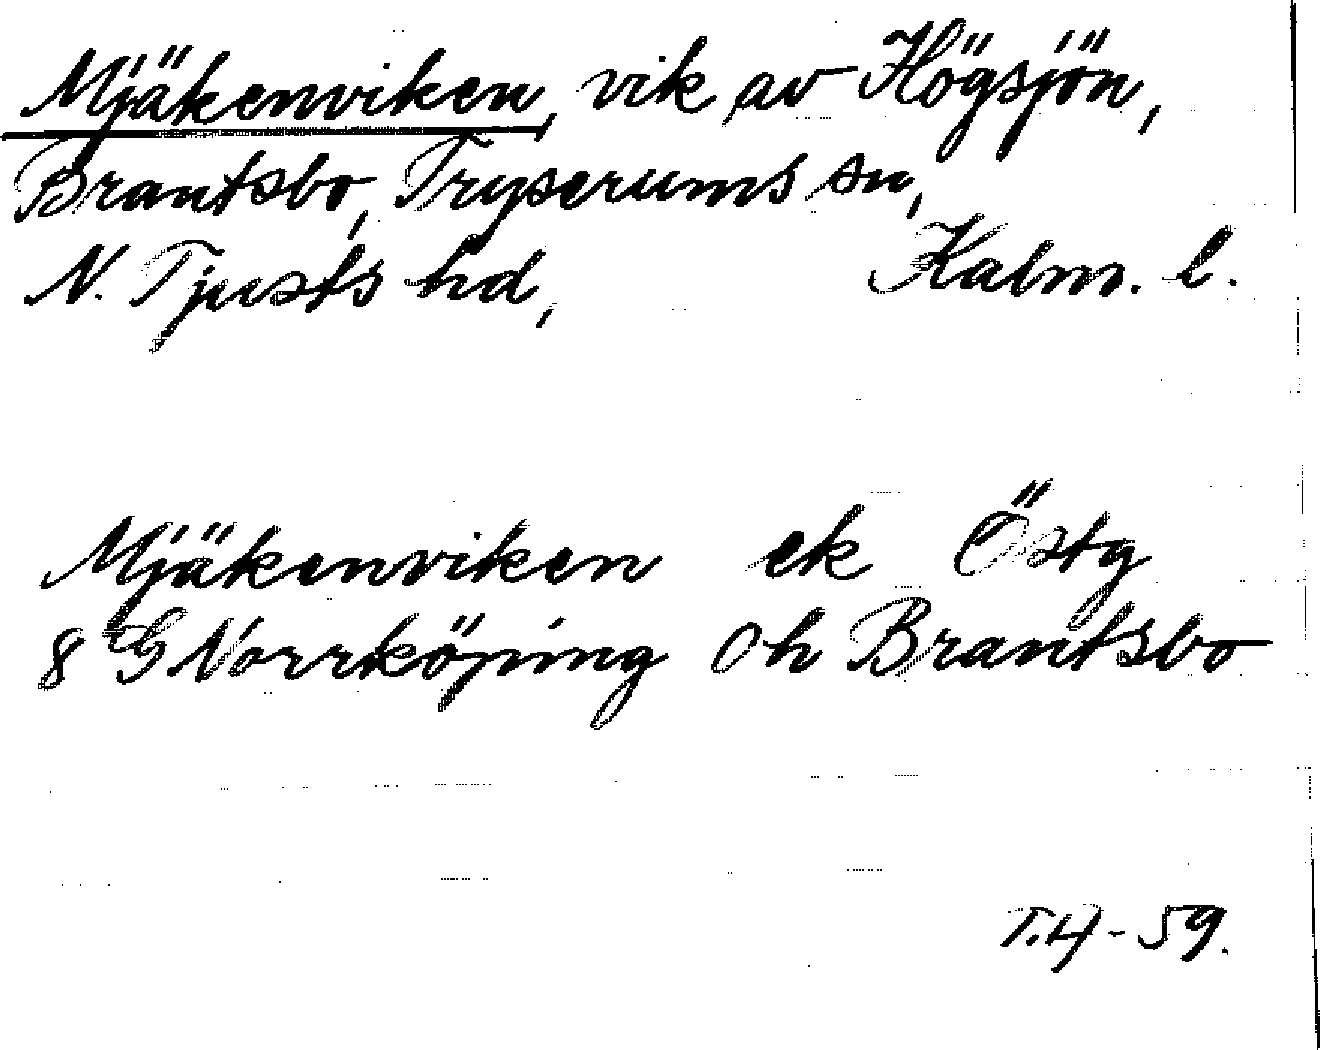 Mjäkenviken, vik av Högsjön,
Brantsbo, Tryserums sn,
N. Tjusts hd, Kalm. l.
Mjäkenviken ek Östg
8 G Norrköping Oh Brantsbo
T.H-59.